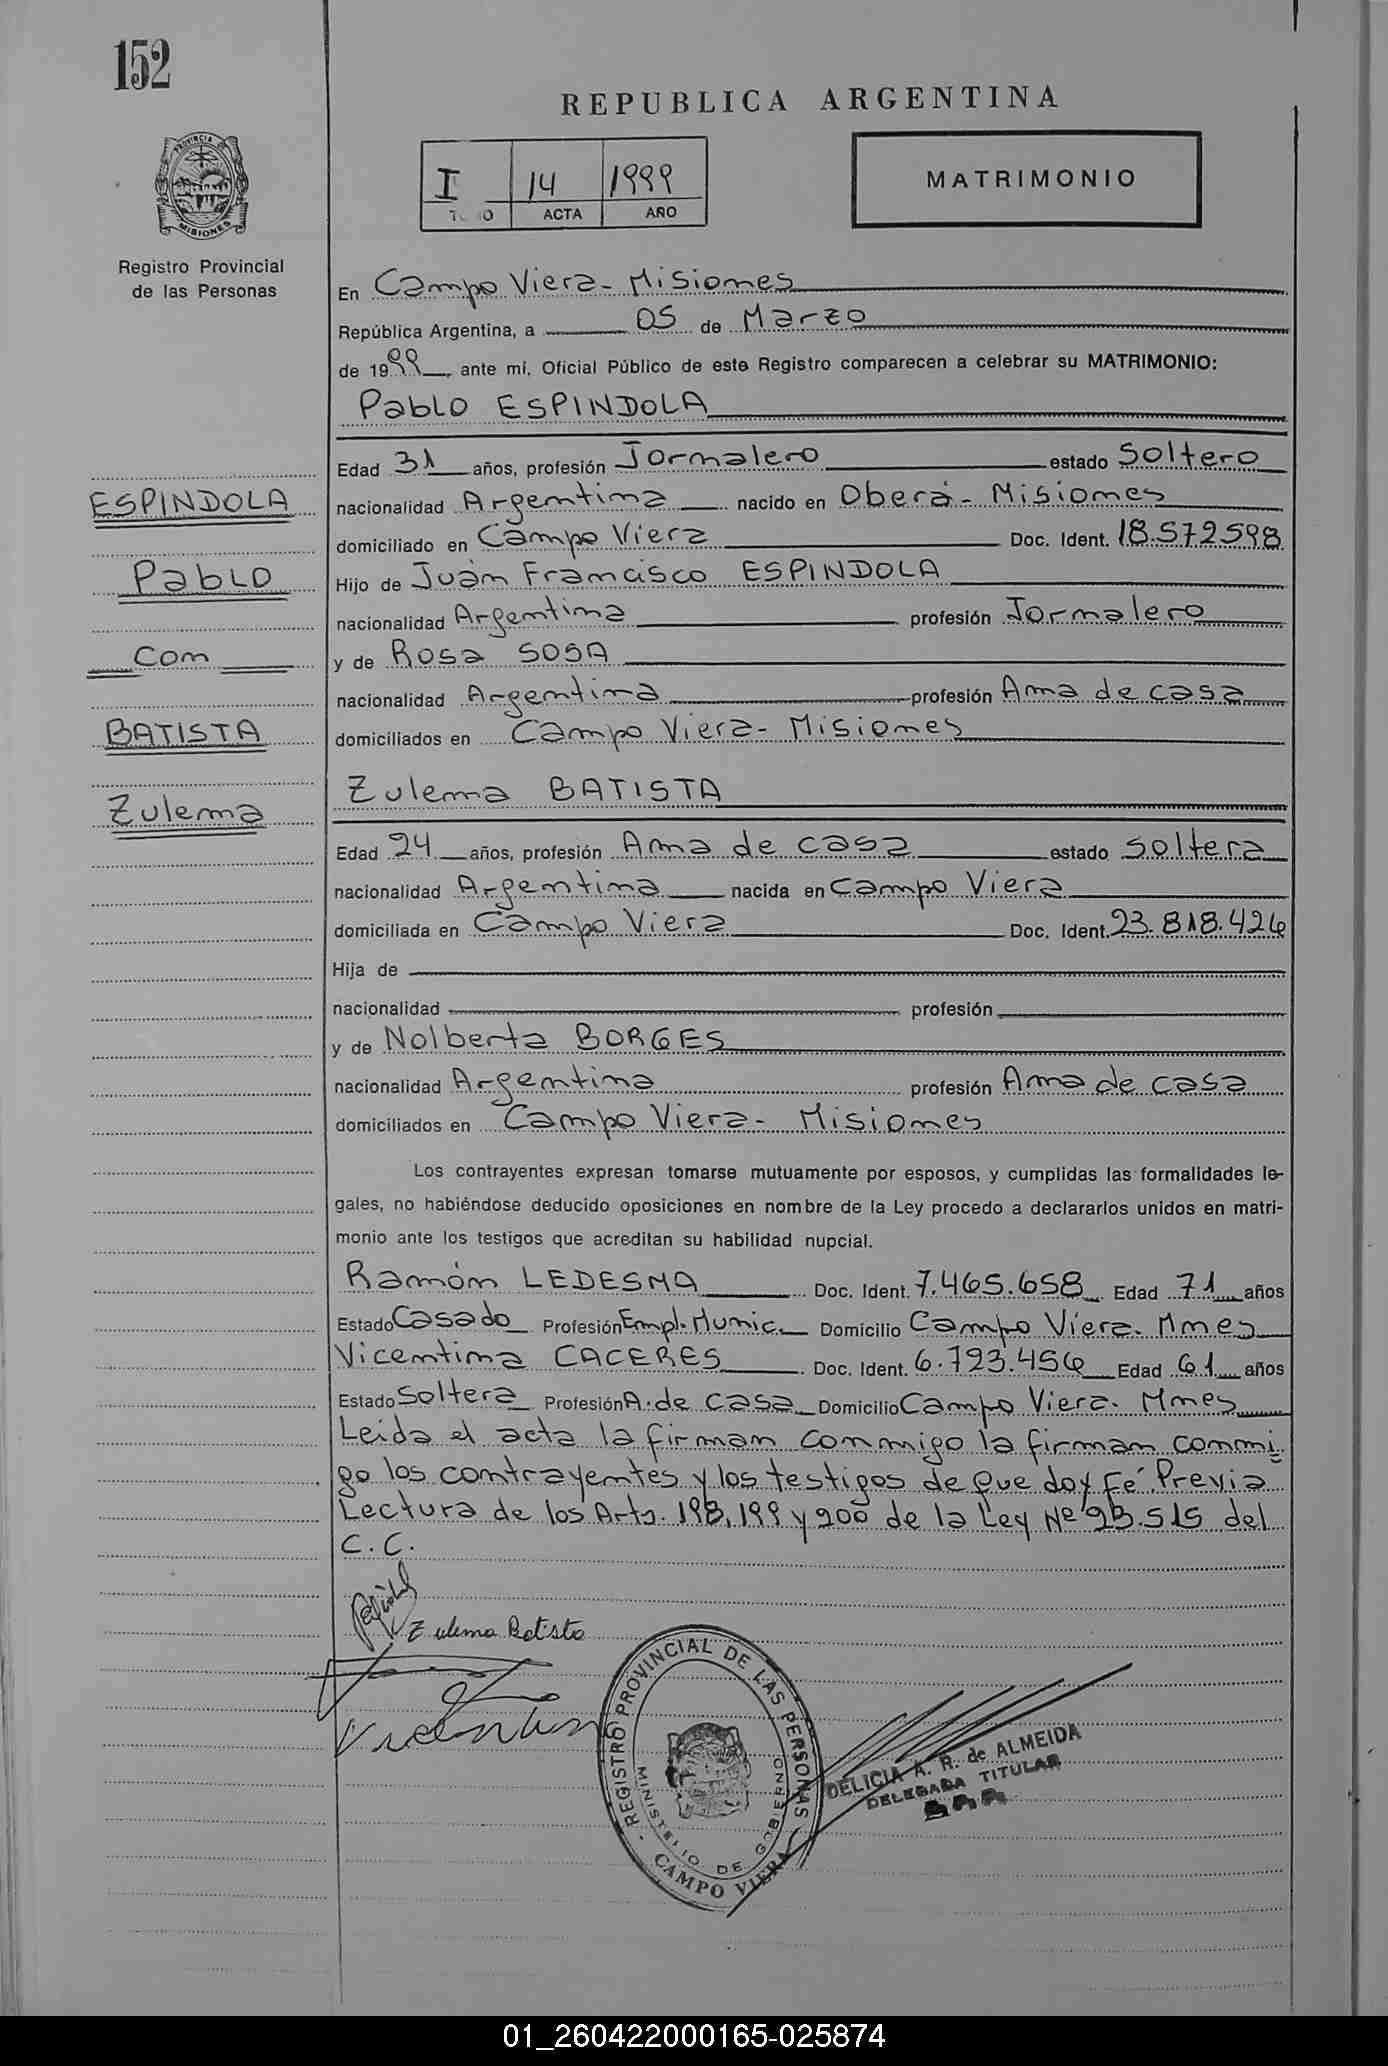 152
REPUBLICA ARGENTINA
PROVINCIA
MISIONES
I 14 1999
TOMO ACTA AÑO
MATRIMONIO
Registro Provincial
de las Personas
En Campo Viera - Misiones
República Argentina, a 05 de Marzo
de 1999, ante mí, Oficial Público de este Registro comparecen a celebrar su MATRIMONIO:
Pablo ESPINDOLA
Edad 31 años, profesión Jornalero estado Soltero
nacionalidad Argentina nacido en Oberá - Misiones
domiciliado en Campo Viera Doc. Ident. 18.572.598
Hijo de Juan Francisco ESPINDOLA
nacionalidad Argentina profesión Jornalero
y de Rosa SOSA
nacionalidad Argentina profesión Ama de casa
domiciliados en Campo Viera - Misiones
ESPINDOLA
Pablo
Con
BATISTA
Zulema
Zulema BATISTA
Edad 24 años, profesión Ama de casa estado soltera
nacionalidad Argentina nacida en Campo Viera
domiciliada en Campo Viera Doc. Ident. 23.818.426
Hija de
nacionalidad profesión
y de Nolberta BORGES
nacionalidad Argentina profesión Ama de casa
domiciliados en Campo Viera - Misiones
Los contrayentes expresan tomarse mutuamente por esposos, y cumplidas las formalidades le-
gales, no habiéndose deducido oposiciones en nombre de la Ley procedo a declararlos unidos en matri-
monio ante los testigos que acreditan su habilidad nupcial.
Ramón LEDESMA Doc. Ident. 7.465.658 Edad 71 años
Estado Casado Profesión Empl. Munic. Domicilio Campo Viera. Mnes
Vicentina CACERES Doc. Ident. 6.793.456 Edad 61 años
Estado Soltera Profesión A. de casa Domicilio Campo Viera. Mnes
Leída el acta la firman conmigo la firman conmi
go los contrayentes y los testigos de que doy Fe. Previa
Lectura de los Arts. 198, 199 y 200 de la Ley Nº 23.515 del
C.C.
Zulema Batista
REGISTRO PROVINCIAL DE LAS PERSONAS
MINISTERIO DE GOBIERNO
CAMPO VIERA
DELICIA A. R. de ALMEIDA
DELEGADA TITULAR
01_260422000165-025874